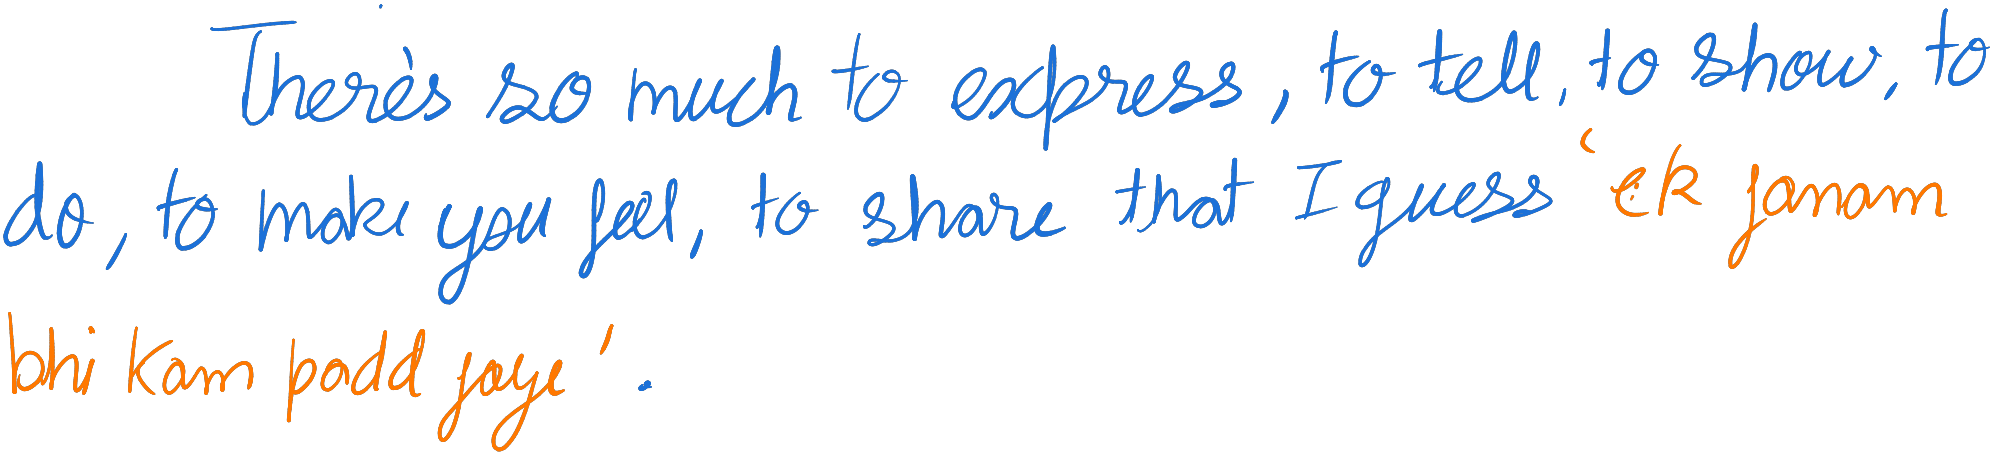 There's so much to express, to tell, to show, to
do, to make you feel, to share that I guess 'ek janam
bhi kam padd jaye'.